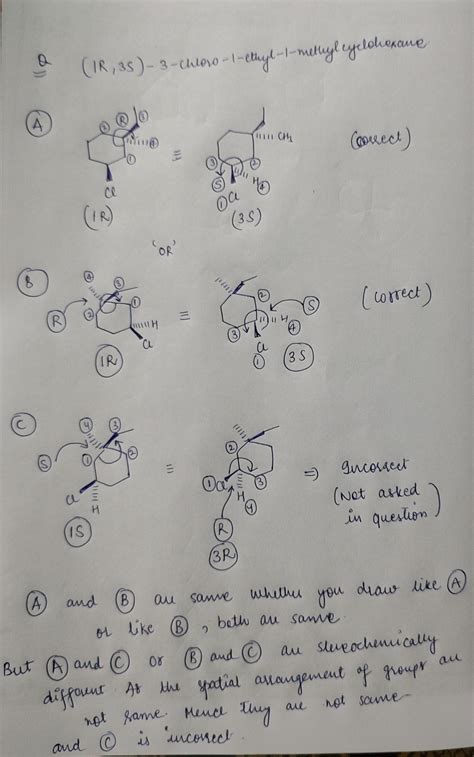 Q (1R, 3S) - 3 - chloro - 1 - ethyl - 1 - methyl cyclohexane
A
(correct)
2 R 1
3
1
4
≡
CH3
3 2
S H 4
1 Cl
Cl
(1R)
(3S)
'OR'
B
(correct)
4 3
1
R 2
H
Cl
1R
≡
2
S
3 H
4
Cl
1
3S
C
4 3
S 1 2
Cl
H
1S
≡
2
1 Cl
3
H
4
R
3R
⇒ Incorrect
(Not asked
in question)
A and B are same whether you draw like A
or like B, both are same.
But A and C or B and C are stereochemically
different As the spatial arrangement of groups are
not same. Hence they are not same
and C is incorrect.